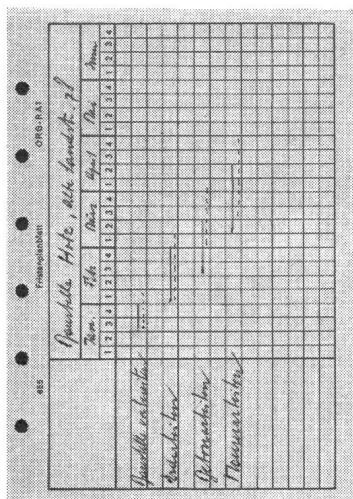 465 Fristenplanblatt ORG-RAT
Baustelle Hotz, alte Landstr. 78
Jan. Feb. März April Mai Juni
1 2 3 4 1 2 3 4 1 2 3 4 1 2 3 4 1 2 3 4 1 2 3 4
Baustelle vorbereiten
Erdarbeiten
Betonarbeiten
Maurerarbeiten